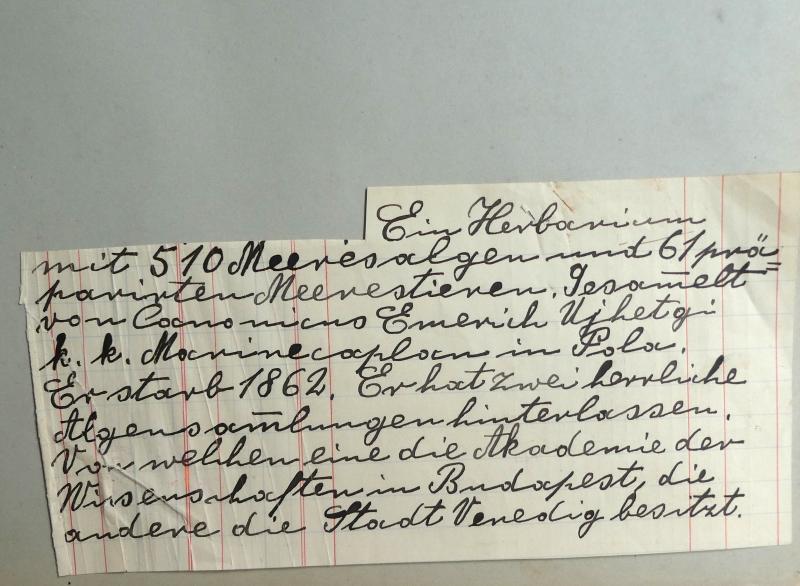 Ein Herbarium
mit 510 Meeresalgen und 61 prä=
parirten Meerestieren. Gesam̄elt
von Canonicus Emerich Ujhetgi
k. k. Marinecaplan in Pola.
Er starb 1862. Er hat zwei herrliche
Algensam̄lungen hinterlassen.
Von welchen eine die Akademie der
Wissenschaften in Budapest, die
andere die Stadt Venedig besitzt.